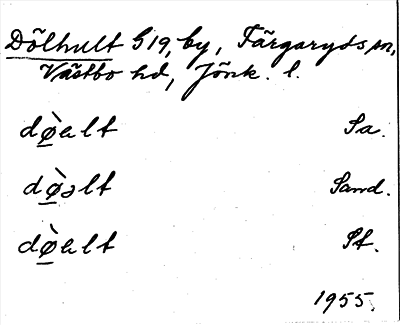 Dölhult G19, by, Färgaryds sn,
Västbo hd, Jönk. l.
dø̲̀ɐlt Sa.
dø̲̀əlt Sand.
dø̲̀ɐlt Sf.
1955.